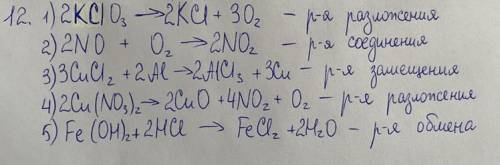 12. 1) 2KClO₃ → 2KCl + 3O₂ – р-я разложения
2) 2NO + O₂ → 2NO₂ – р-я соединения
3) 3CuCl₂ + 2Al → 2AlCl₃ + 3Cu – р-я замещения
4) 2Cu(NO₃)₂ → 2CuO + 4NO₂ + O₂ – р-я разложения
5) Fe(OH)₂ + 2HCl → FeCl₂ + 2H₂O – р-я обмена